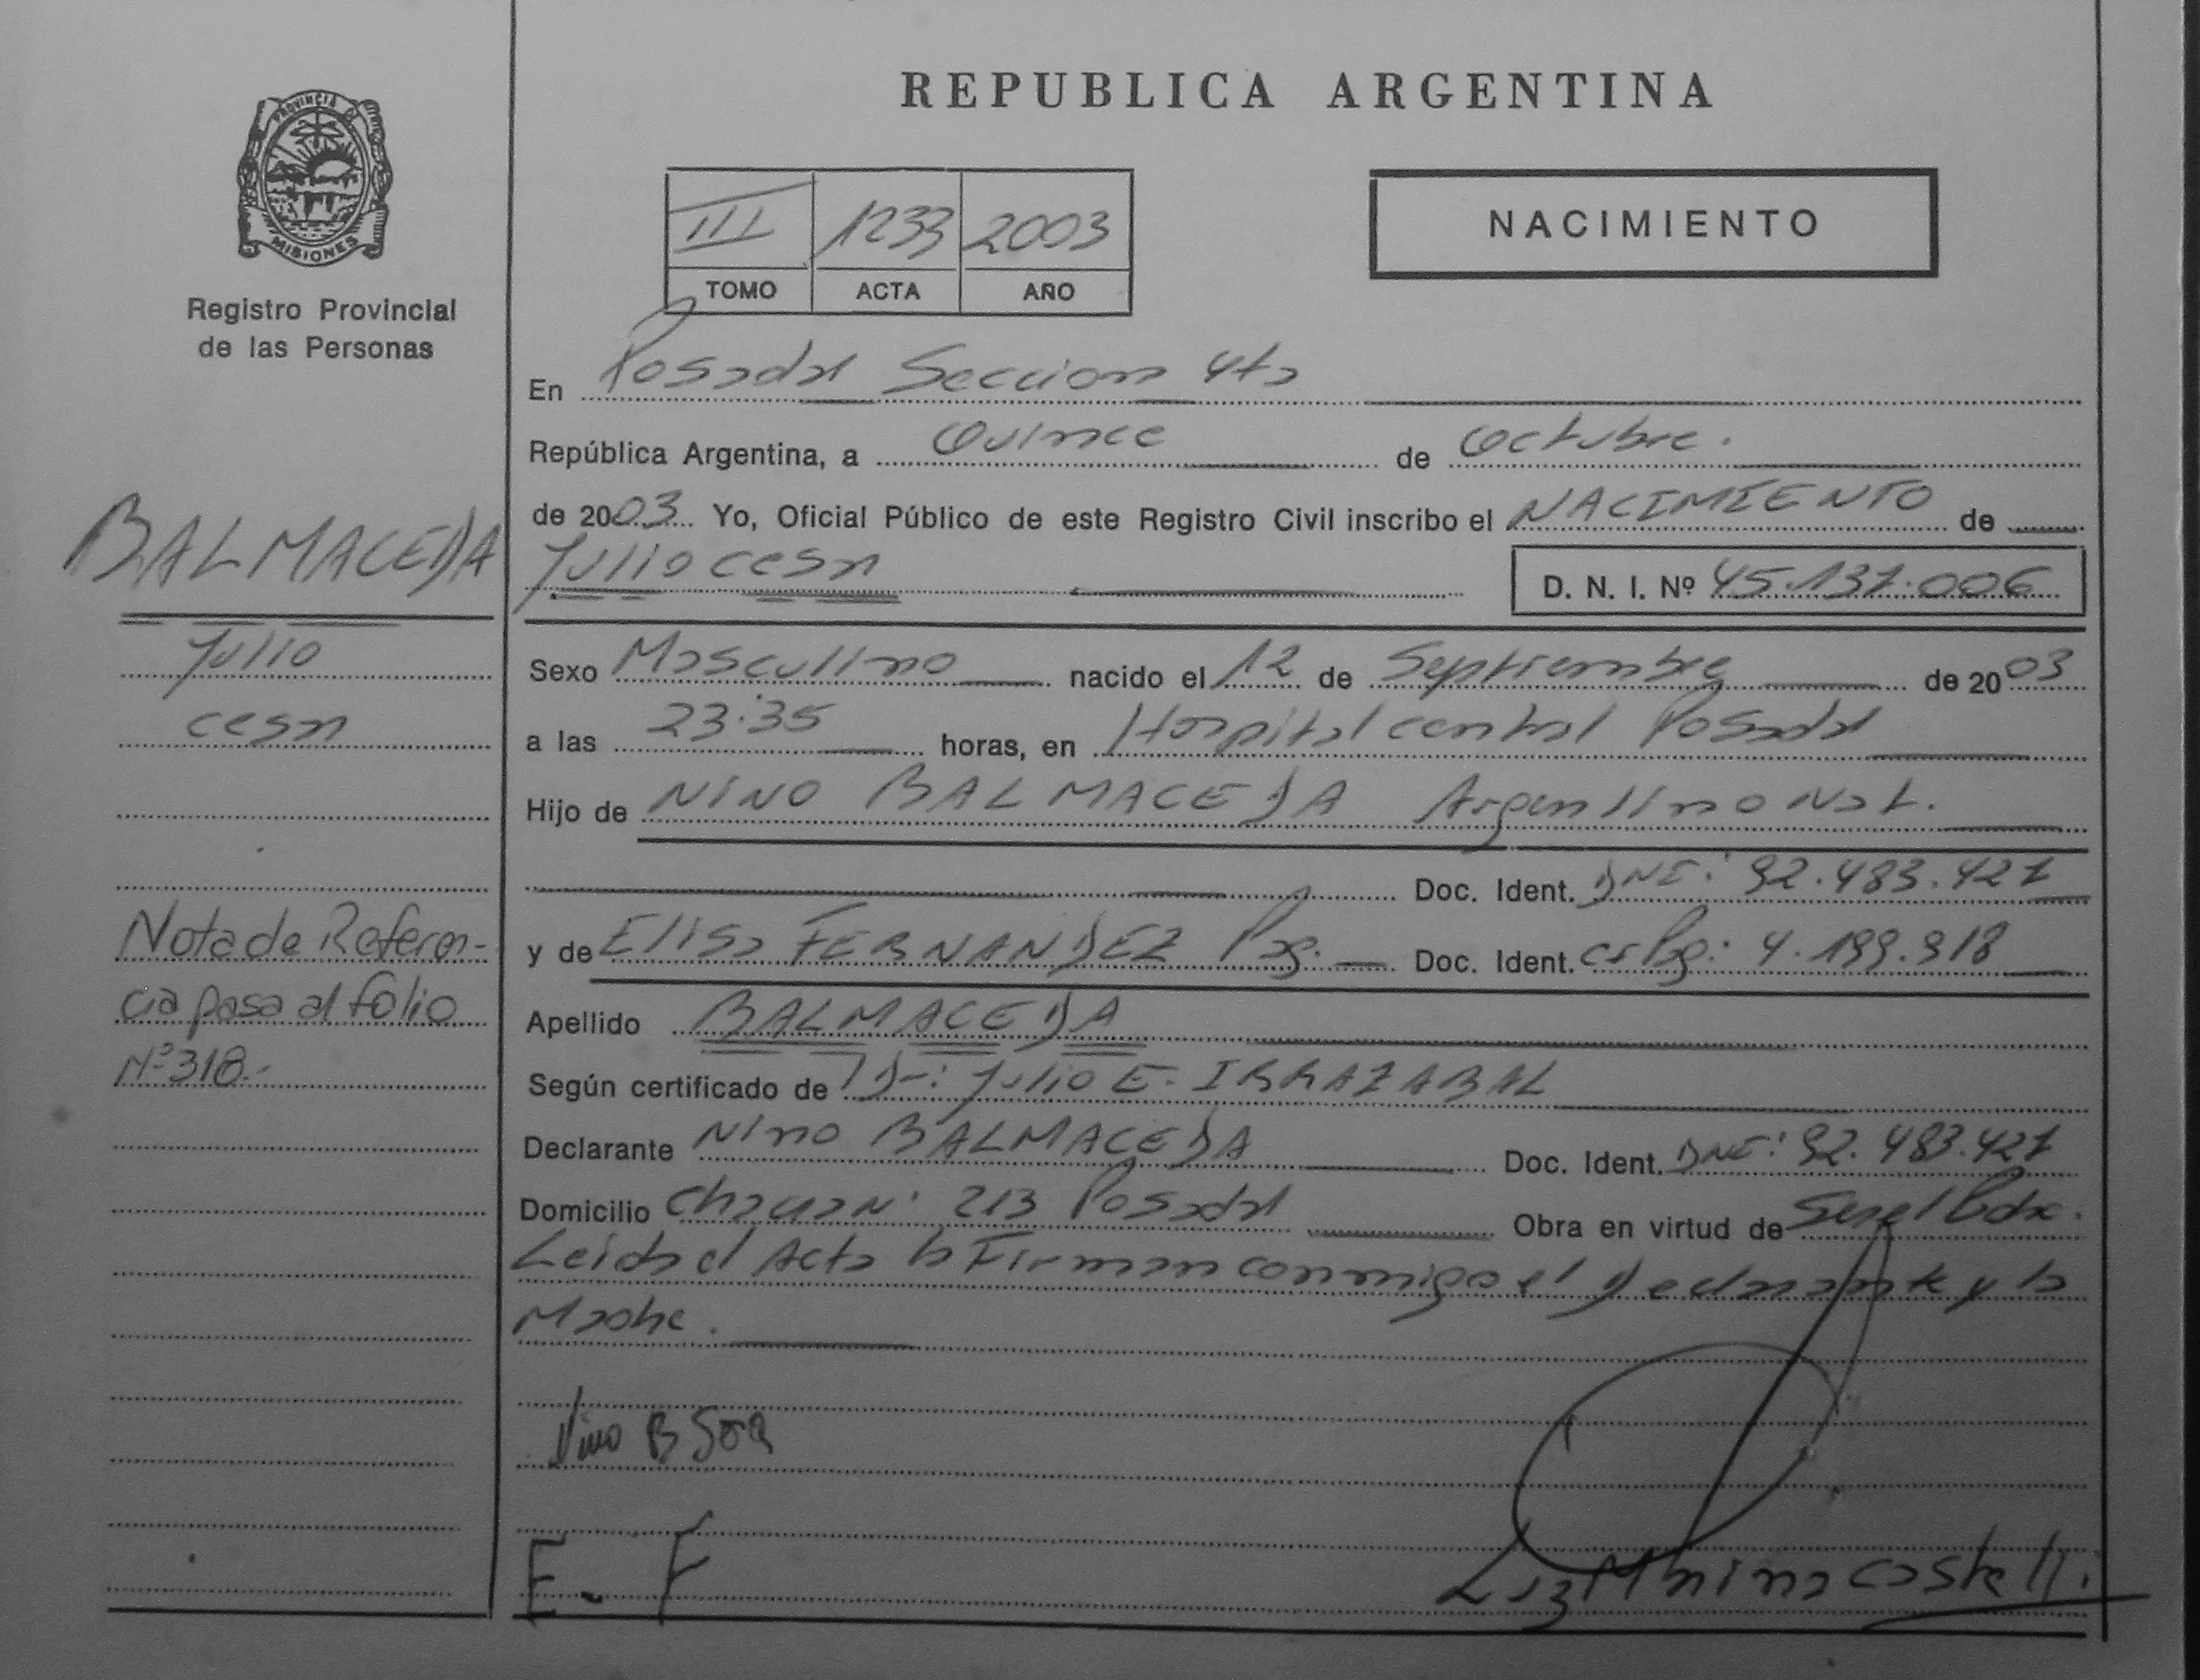 REPUBLICA ARGENTINA
PROVINCIA DE
MISIONES
Registro Provincial
de las Personas
III 1233 2003
TOMO ACTA AÑO
NACIMIENTO
En Posadas Seccion 4ta
República Argentina, a Quince de Octubre.
de 2003 Yo, Oficial Público de este Registro Civil inscribo el NACIMIENTO de
Julio cesar
D. N. I. Nº 45.137.006
BALMACEDA
Julio
cesar
Sexo Masculino nacido el 12 de Septiembre de 2003
a las 23:35 horas, en Hospital central Posadas
Hijo de NINO BALMACEDA Argentino Nat.
Doc. Ident. DNI: 92.483.427
y de Elisa FERNANDEZ Pag. Doc. Ident. Pg: 4.199.918
Apellido BALMACEDA
Según certificado de Dr: Julio E. IRRAZABAL
Declarante Nino BALMACEDA Doc. Ident. DNI: 92.483.427
Domicilio 213 Posadas Obra en virtud de
Leida el Acta la Firman conmigo el Declarante y la
Madre.
Nota de Referen-
cia pasa al folio
Nº 318.-
Nino B
E - F
Luz Marina Castelli